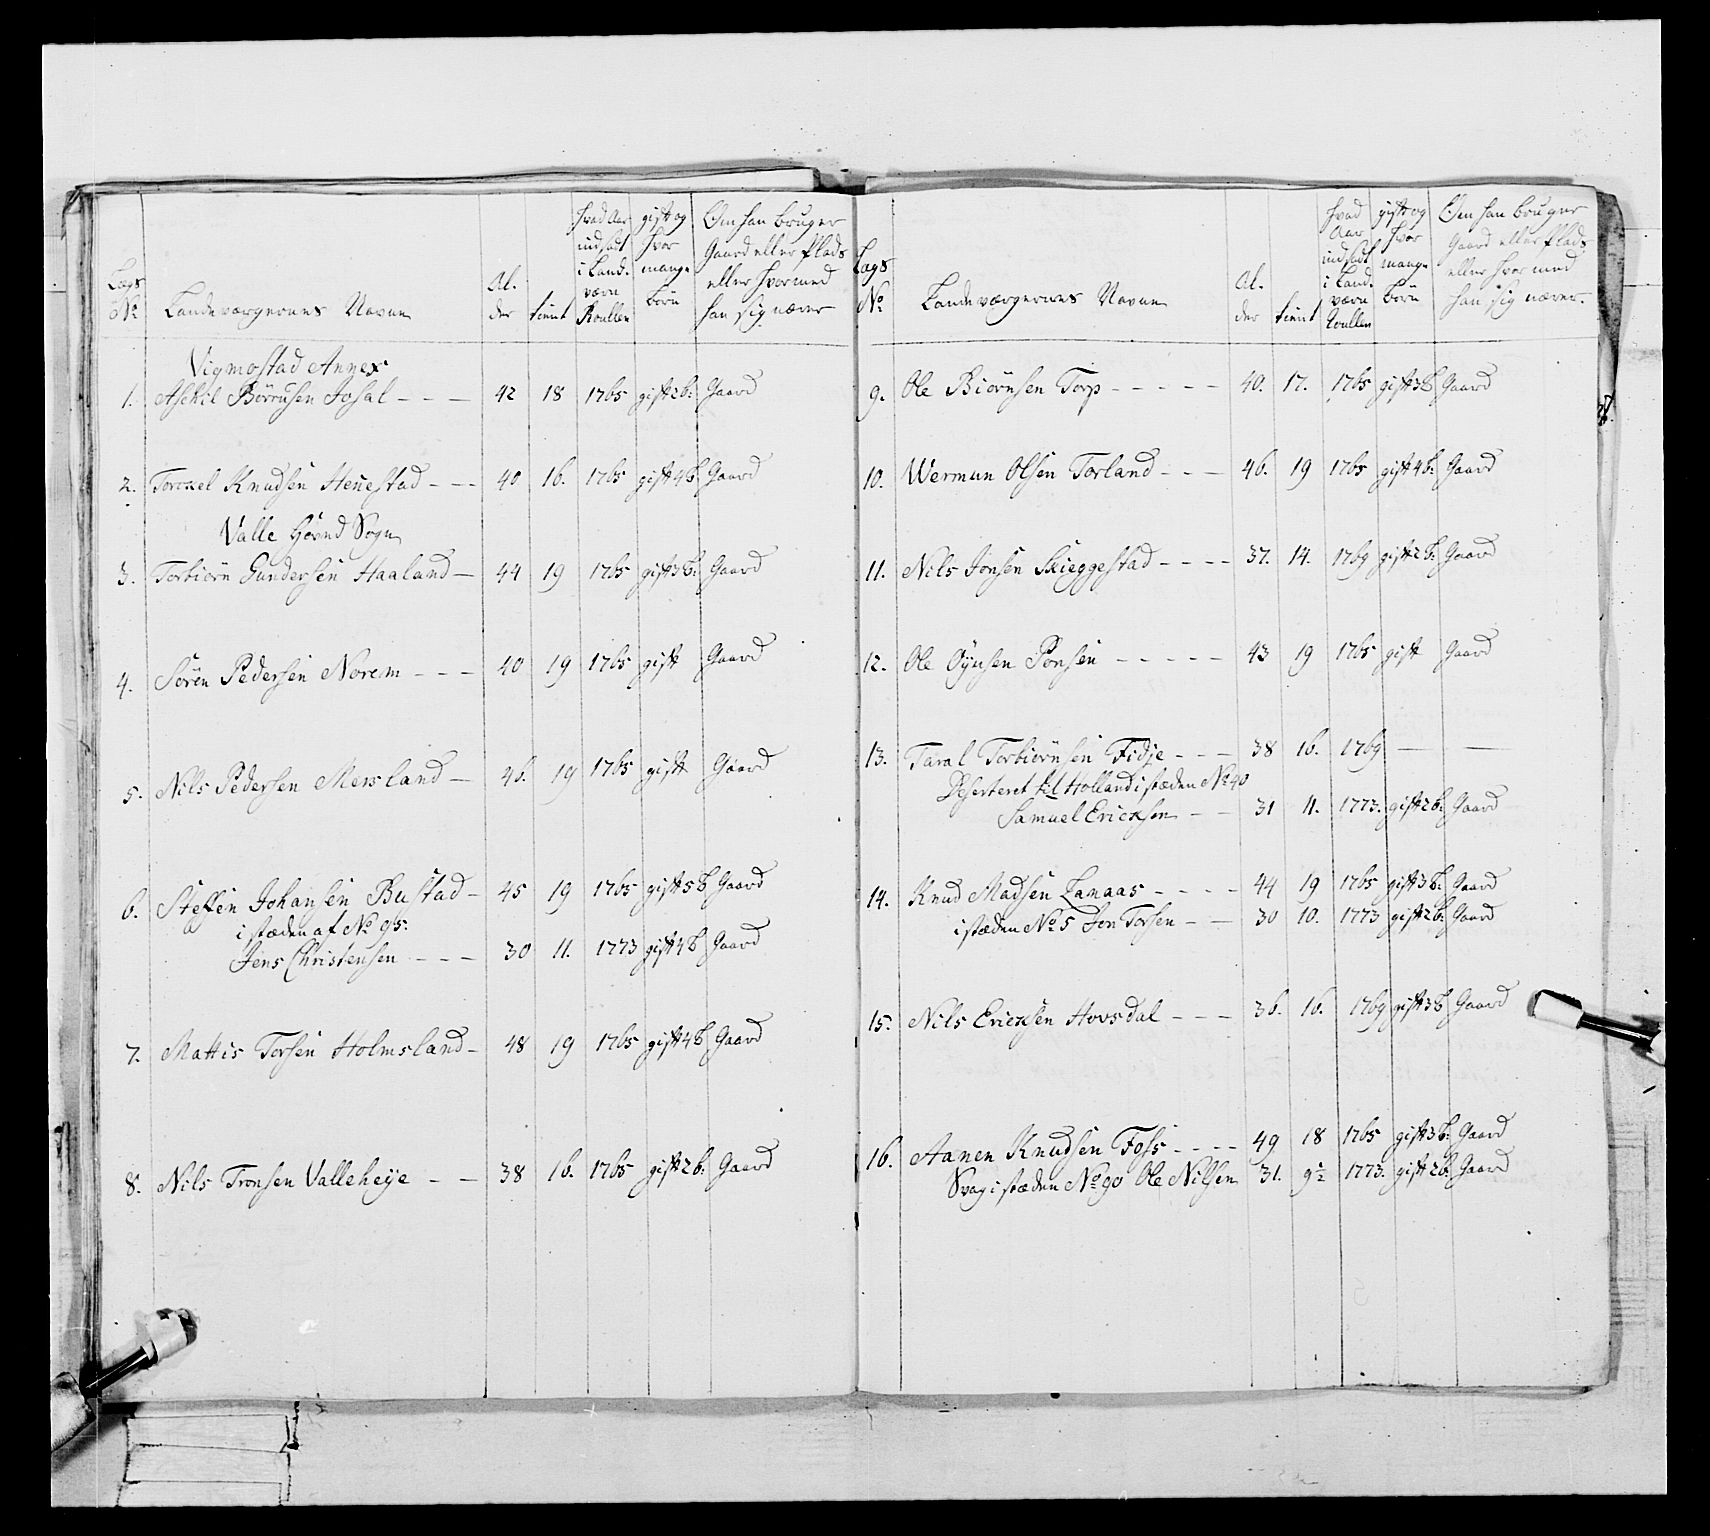 Lags No
Landeværgernes Navne
Alder
tient
hvad Aar indsadt i Land. værn Roullen
gift og hvor mange Børn
Om han bruger Gaard eller Plads eller hvormed han sig nærer
Vigmostad Annex
1. Aschil Börrusen Josal - - - 42 18 1765 gift 2 b: Gaard
2. Torckel Knudsen Henestad - - - 40 16. 1765 gift 4 B. Gaard
Valle Hoved Sogn
3. Torbiörn Gundersen Haaland - 44 19 1765 gift 3 B: Gaard
4. Sören Pedersen Norem - - - 40 19 1765 gift Gaard
5. Nils Pedersen Mersland - 46. 19 1765 gift Gaard
6. Steffen Johansen Bustad - 45 19 1765 gift 5 B Gaard
i stæden af No 95:
Jens Christensen - - - 30 11. 1773 gift 4 B Gaard
7. Mattis Torsen Holmsland - 48 19 1765 gift 4 B Gaard
8. Nils Tronsen Valleheye - - 38 16. 1765 gift 2 b. Gaard
Lags No
Landeværgernes Navne
Alder
tient
hvad Aar indsadt i Land. værn Roullen
gift og hvor mange Börn
Om han bruger Gaard eller Plads eller hvormed han sig nærer.
9. Ole Biörnsen Torp - - - - - 40. 17. 1765 gift 3 B Gaard
10. Wermun Olsen Torland - - - 46. 19 1765 gift 4 b: Gaard
11. Nils Jonsen Skieggestad - - - - 37. 14. 1769 gift 2 B: Gaard
12. Ole Öynsen Ponsen - - - - - 43 19 1765 gift Gaard
13. Taral Torbiörnsen Fidje - - - 38 16. 1769 — —
Deserteret til Holland i stæden No 40
Samuel Ericksen - - 31 11. 1773. gift 2 b: Gaard
14. Knud Madsen Lanaas - - - - 44 19 1765 gift 3 B: Gaard
i stæden No 5 Jon Torsen - - 30 10. 1773 gift 2 b: Gaard
15. Nils Ericksen Hovsdal - - - 36. 16. 1769 gift 3 B Gaard
16. Aanen Knudsen Foss - - - - 49 18 1765 gift 3 b: Gaard
Svag i stæden No 90 Ole Nilsen 31. 9½ 1773. gift 2 b. Gaard